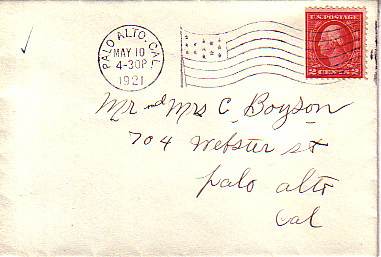 PALO ALTO, CAL.
MAY 10
4-30P
1921
U.S. POSTAGE
2 CENTS 2
Mr and Mrs C. Boyson
704 Webster st
palo alto
Cal